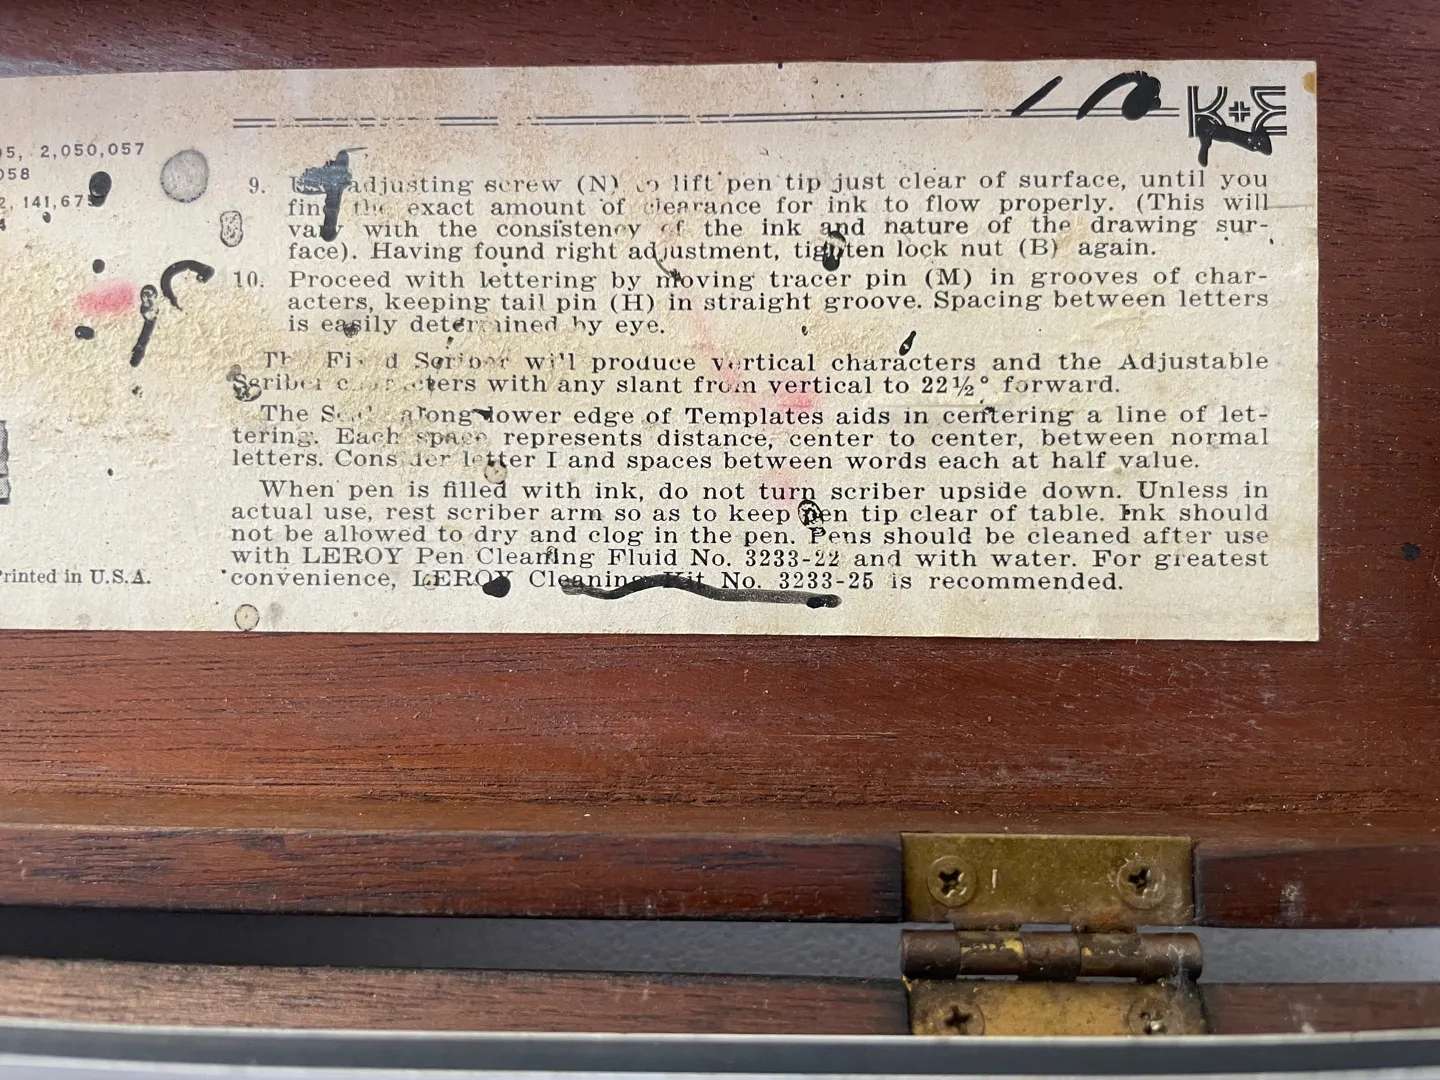 5, 2,050,057
058
2, 141,675
K+E
9. Use adjusting screw (N) to lift pen tip just clear of surface, until you
find the exact amount of clearance for ink to flow properly. (This will
vary with the consistency of the ink and nature of the drawing sur-
face). Having found right adjustment, tighten lock nut (B) again.
10. Proceed with lettering by moving tracer pin (M) in grooves of char-
acters, keeping tail pin (H) in straight groove. Spacing between letters
is easily determined by eye.
The Fixed Scriber will produce vertical characters and the Adjustable
Scriber characters with any slant from vertical to 22½° forward.
The Scale along lower edge of Templates aids in centering a line of let-
tering. Each space represents distance, center to center, between normal
letters. Consider letter I and spaces between words each at half value.
When pen is filled with ink, do not turn scriber upside down. Unless in
actual use, rest scriber arm so as to keep pen tip clear of table. Ink should
not be allowed to dry and clog in the pen. Pens should be cleaned after use
with LEROY Pen Cleaning Fluid No. 3233-22 and with water. For greatest
convenience, LEROY Cleaning Kit No. 3233-25 is recommended.
Printed in U.S.A.